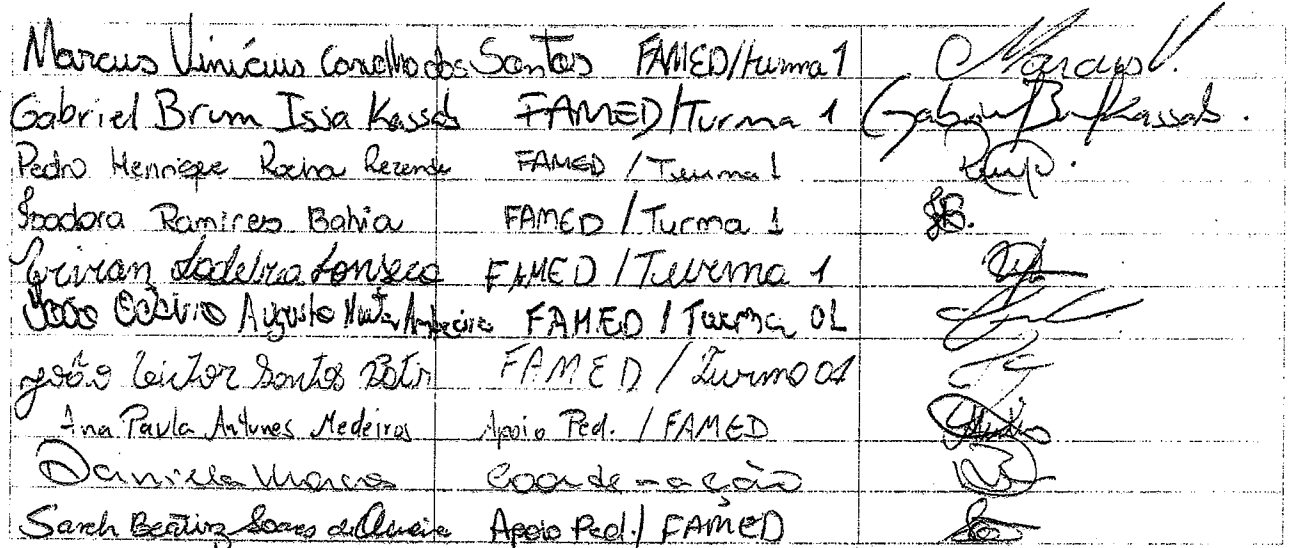 Marcus Vinícius Carvalho dos Santos FAMED/turma 1 Marcus V.
Gabriel Brum Issa Kassab FAMED/Turma 1 Gabriel B Kassab.
Pedro Henrique Rocha Rezende FAMED / Turma 1
Isadora Ramires Bahia FAMED / Turma 1 IB.
Fonseca FAMED / Turma 1
João Augusto FAMED / Turma 01
João Victor Santos FAMED / Turma 01
Ana Paula Antunes Medeiros Apoio Ped. / FAMED
Daniela Coordenação
Sarah Beatriz Soares de Oliveira Apoio Ped./ FAMED